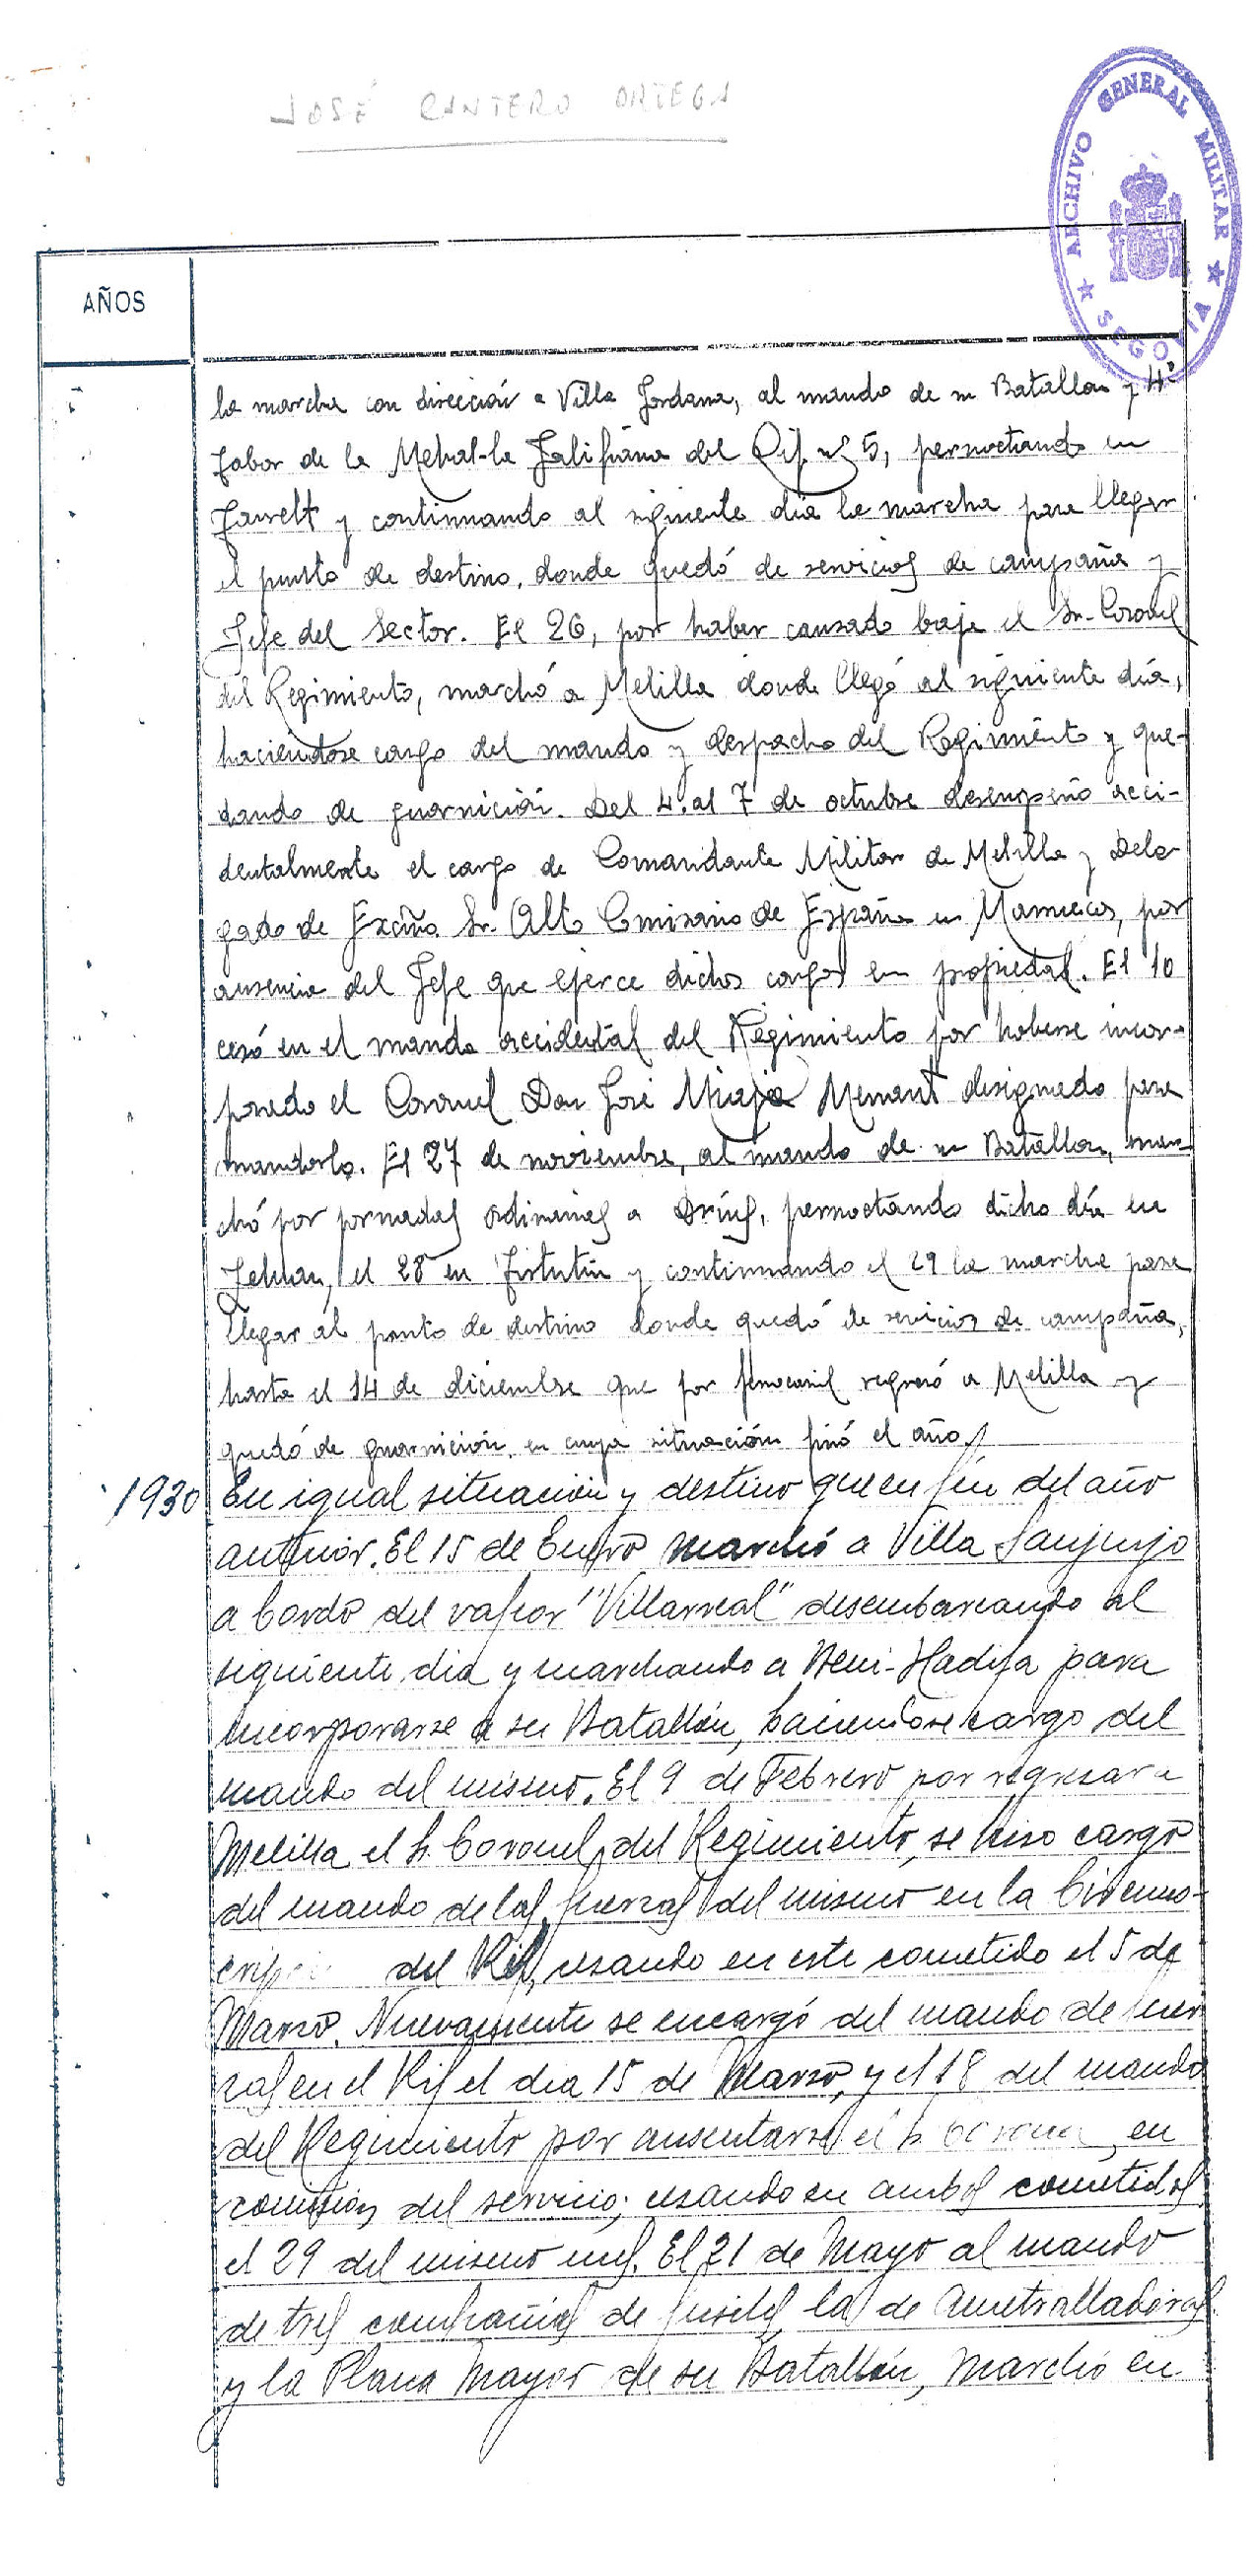 JOSÉ CANTERO ORTEGA
ARCHIVO GENERAL MILITAR
★ SEGOVIA ★
AÑOS
la marcha con dirección a Villa Jordana, al mando de su Batallon y 4º
Tabor de la Mehal-la Jalifiana del Rif nº 5, pernoctando en
y continuando al siguiente día la marcha para llegar
al punto de destino, donde quedó de servicios de campaña y
Jefe del Sector. El 26, por haber causado baja el Sr. Coronel
del Regimiento, marchó a Melilla donde llegó al siguiente día,
haciendose cargo del mando y despacho del Regimiento y que-
dando de guarnición. Del 4 al 7 de octubre desempeñó acci-
dentalmente el cargo de Comandante Militar de Melilla y Dele-
gado de Excmo. Sr. Alto Comisario de España en Marruecos, por
ausencia del Jefe que ejerce dichos cargos en propiedad. El 10
cesó en el mando accidental del Regimiento por haberse incor-
porado el Coronel Don José Miaja Menant designado para
mandarlo. El 27 de noviembre, al mando de su Batallon, mar-
chó por jornadas ordinarias a Drius, pernoctando dicho día en
el 28 en Tistutin y continuando el 29 la marcha para
llegar al punto de destino donde quedó de servicios de campaña,
hasta el 14 de diciembre que por ferrocarril regresó a Melilla y
quedó de guarnición en cuya situación finó el año.
1930 En igual situación y destino que en fin del año
anterior. El 15 de Enero marchó a Villa Sanjurjo
a bordo del vapor "Villarreal" desembarcando al
siguiente dia y marchando a Beni-Hadifa para
incorporarse a su Batallón, haciendose cargo del
mando del mismo. El 9 de Febrero por regresar a
Melilla el Sr. Coronel del Regimiento, se hizo cargo
del mando de las fuerzas del mismo en la Circuns-
del Rif, cesando en este cometido el 5 de
Marzo. Nuevamente se encargó del mando de fuer
zas en el Rif el dia 15 de Marzo, y el 18 del mando
del Regimiento por ausentarse el Sr. Coronel en
comisión del servicio; cesando en ambos cometidos
el 29 del mismo mes. El 21 de Mayo al mando
de tres compañias de fusiles, la de Ametralladoras
y la Plana Mayor de su Batallón, marchó en